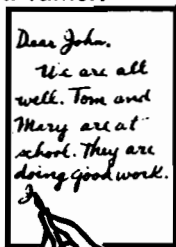 Dear John,
We are all
well. Tom and
Mary are at
school. They are
doing good work.